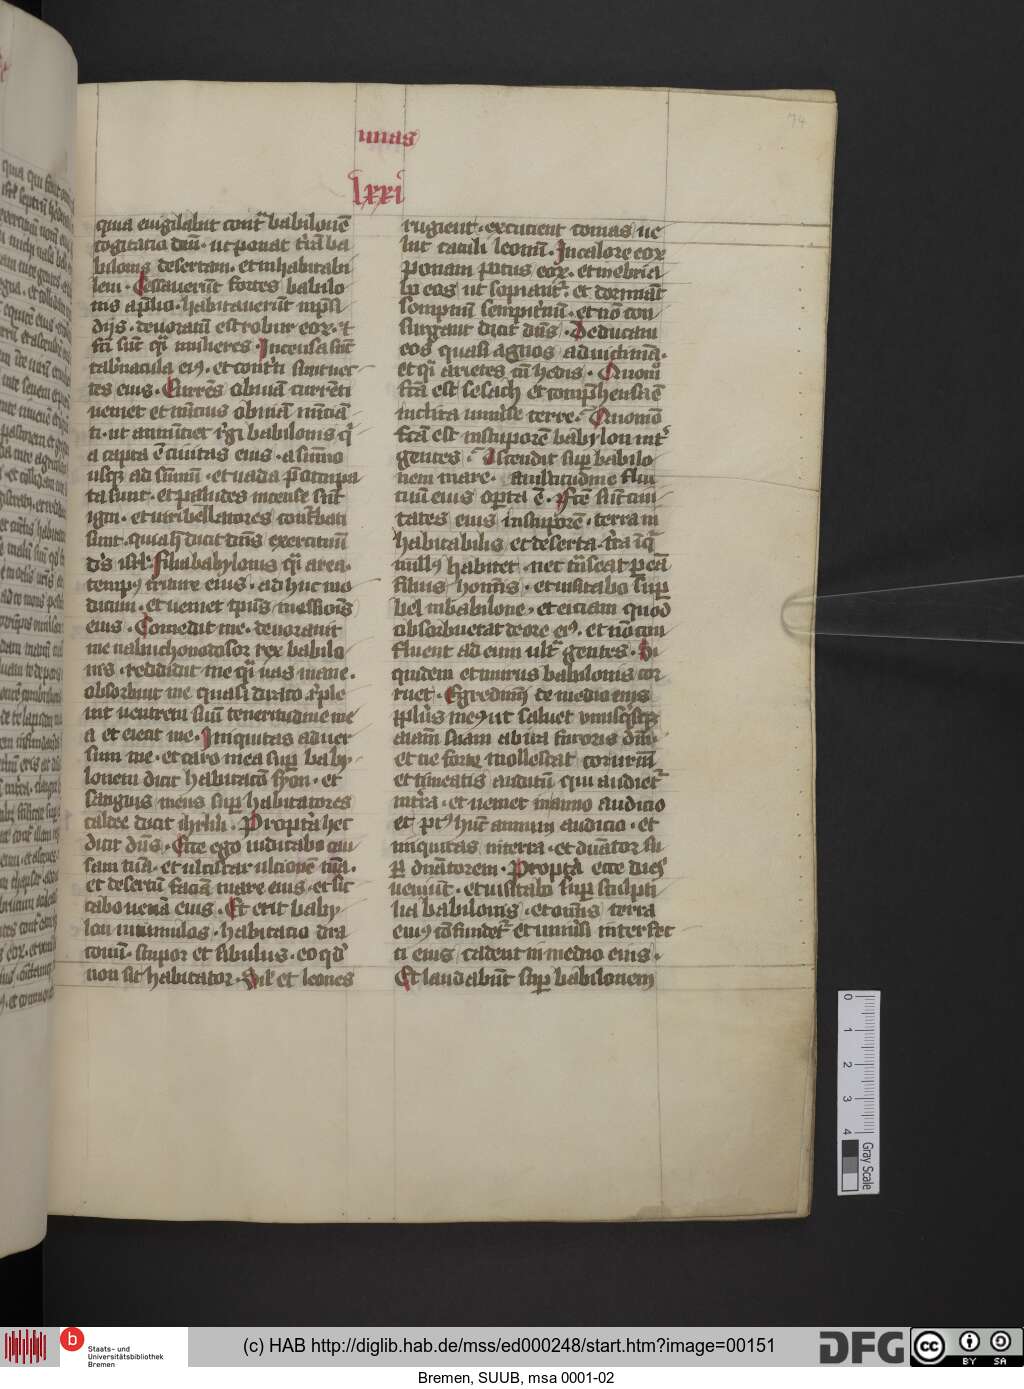 unas
lxxi
74
quia euigilabit contᷓ babilonē
cogitatio dnī · ut ponat trā̄ ba
bilonis desertam · et inhabitabi
lem · Cessauerūt fortes babilo
nis a p̄lio · habitauerūt in p̄si
dijs · deuoratū est robur eoꝝ · ⁊
fcī sūt q̄i mulieres · Incensa sūt
tab̾nacula ei⁹ · et cont̾ti sunt uec
tes eius · Currēs obuiā currēti
ueniet et nūtius obuiā nūciā
ti · ut annūtiet r̾gi babilonis q̾
a capta ē ciuitas eius · a sūmo
usqꝫ ad sūmū · et uada p̄occupa
ta sunt · et paludes incense sūt
igni · et uiri bellatores cont̾bati
sunt · quia h̾ dicit dn̄s exercituū
d̄s isrl̄ · Filia babylonis q̄i area ·
temp⁹ triture eius · adhuc mo
dicum · et ueniet tp̄us messionis
eius · Comedit me · deuorauit
me nabuchonodosor rex babilo
nis · reddidit me q̄i uas inane ·
obsorbuit me quasi draco · r̾ple
uit uentrem suū teneritudine me
a et eiecit me · Iniquitas aduer
sum me · et caro mea suꝑ baby
lonem dicit habitatō syon · et
sanguis meus suꝑ habitatores
caldee dicit ihrl̄m · Propt̾a hec
dicit dn̄s · Ecce ego iudicabo cau
sam tuā · et ulciscar ulcionē tuā ·
et desertū faciā mare eius · et sic
cabo uenā eius · Et erit baby
lon in tumulos · habitatio dra
conū · stupor et sibilus · eo qd̾
non sit habitator · Sil̄ et leones
rugient · excucient comas ue
lut catuli leonū · In calore eoꝝ
ponam potus eoꝝ · et inebria
bo eos ut sopiant̾ · et dormiāt
sompnū sempit̾nū · et nō con
surgant dicit dn̄s · Deducam
eos quasi agnos ad uictimā ·
et q̄i arietes cū hedis · Quomō
fc̄a est sesach et comp̾hensa ē
inclita uniu̾se terre · Quomō
fc̄a est in stuporē babylon int̾
gentes · Ascendit suꝑ babilo
nem mare · multitudine fluc
tuū eius op̾ta ē · Fc̄e sūt ciui
tates eius in stuporē · terra in
habitabilis et deserta · t̾ra ī q̄
null⁹ habitet · nec t̾nseat p eā
filius hominis · et uisitabo suꝑ
bel in babilone · et eiciam quod
obsorbuerat de ore ei⁹ · et nō con
fluent ad eum ult̾ gentes · Si
quidem et murus babilonis cor
ruet · Egredimī de medio eius
ppl̄us me⁹ ut saluet unusq̄sqꝫ
aīam suam ab ira furoris dnī ·
et ne forte mollescat cor urm̄
et timeatis auditū qui audiet̾
in t̾ra · et ueniet in anno auditio
et p⁹ hūc annum auditio · et
iniquitas in terra · et dn̄ator su
ꝑ dn̄atorem · Propt̾a ecce dies
ueniūt · et uisitabo suꝑ sculpti
lia babilonis · et omīs terra
eius cōfundet̾ et uniūsi interfec
ti eius cadent in medio eius ·
Et laudabūt suꝑ babilonem
0 1 2 3 4
Gray Scale
Staats- und
Universitätsbibliothek
Bremen
(c) HAB http://diglib.hab.de/mss/ed000248/start.htm?image=00151
DFG
cc BY SA
Bremen, SUUB, msa 0001-02